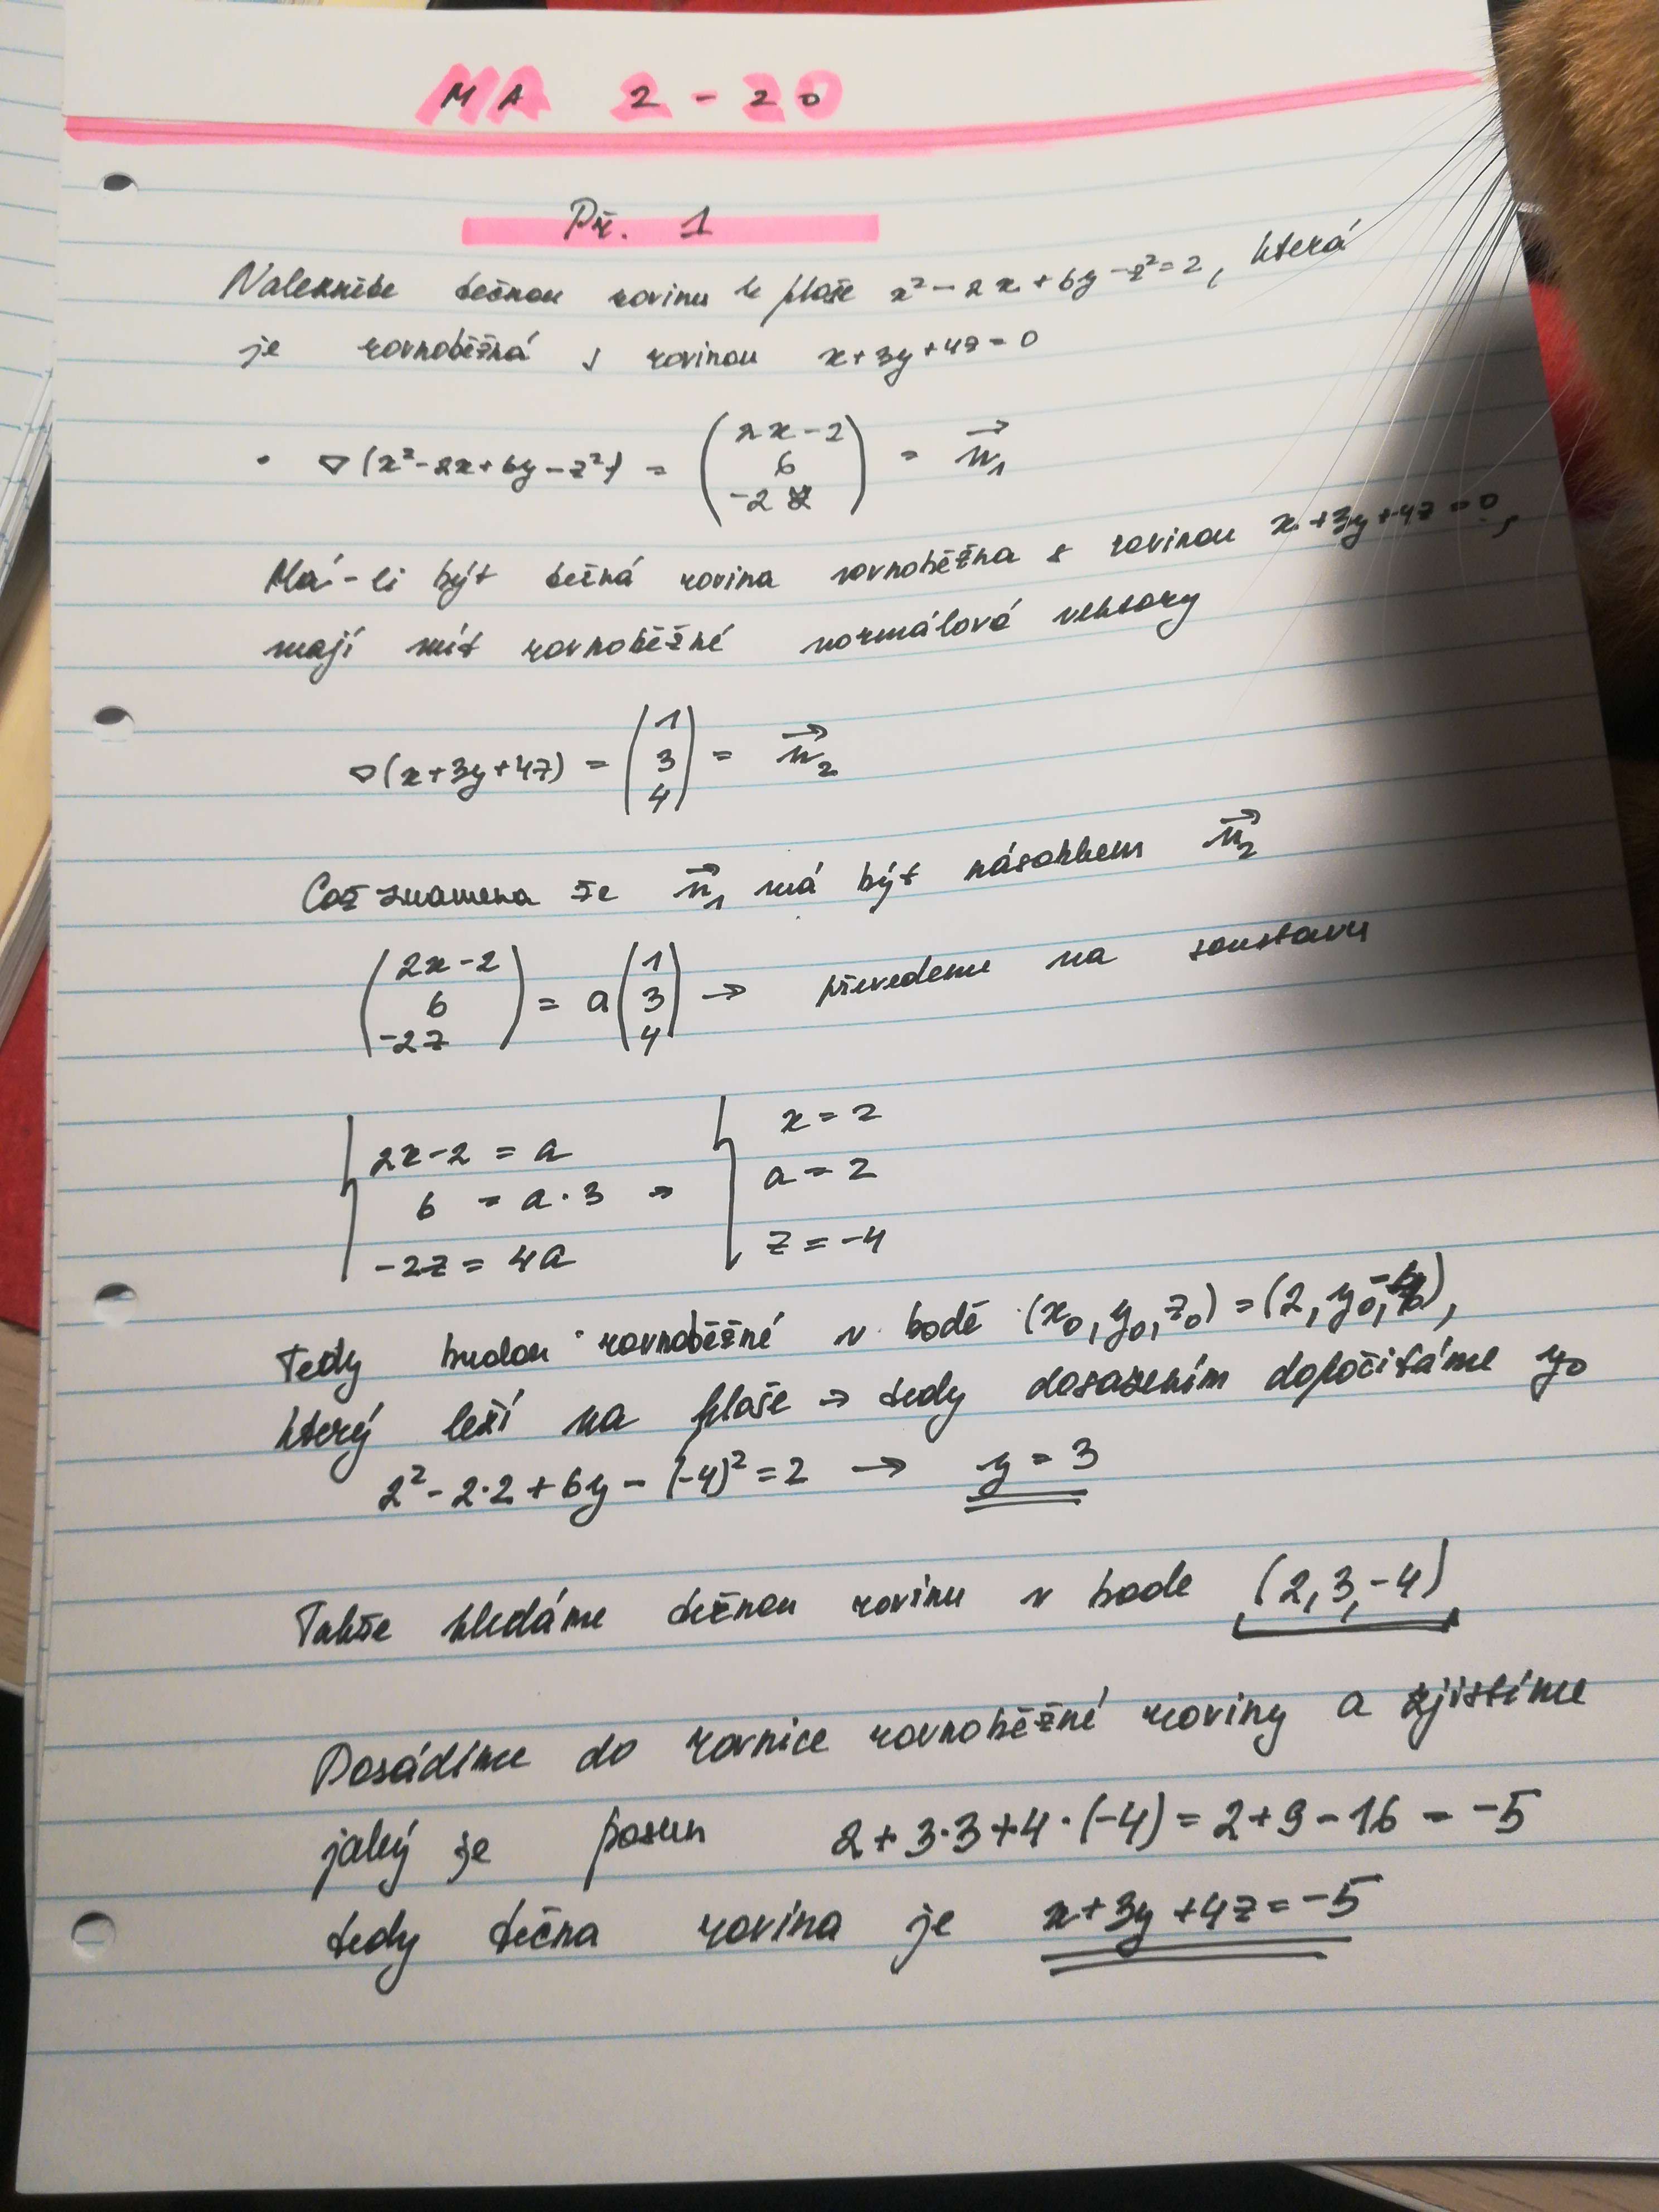 MA 2 - 20
Př. 1
Nalezněte tečnou rovinu k ploše x² - 2x + 6y - z² = 2, která
je rovnoběžná s rovinou x + 3y + 4z = 0
• ∇(x² - 2x + 6y - z²) = (2x - 2, 6, -2z) = n₁
Má-li být tečná rovina rovnoběžna s rovinou x + 3y + 4z = 0,
mají mít rovnoběžné normálové vektory
∇(x + 3y + 4z) = (1, 3, 4) = n₂
Což znamena že n₁ má být násobkem n₂
(2x - 2, 6, -2z) = a(1, 3, 4) → převedeme na soustavu
2x - 2 = a x = 2
6 = a · 3 ⇒ a = 2
-2z = 4a z = -4
Tedy budou rovnoběžné v bodě (x₀, y₀, z₀) = (2, y₀, -4),
který leží na ploše ⇒ tedy dosazením dopočítáme y₀
2² - 2·2 + 6y - (-4)² = 2 → y = 3
Takže hledáme tečnou rovinu v bode (2, 3, -4)
Dosádíme do rovnice rovnoběžné roviny a zjistíme
jaký je posun 2 + 3·3 + 4·(-4) = 2 + 9 - 16 = -5
tedy tečna rovina je x + 3y + 4z = -5